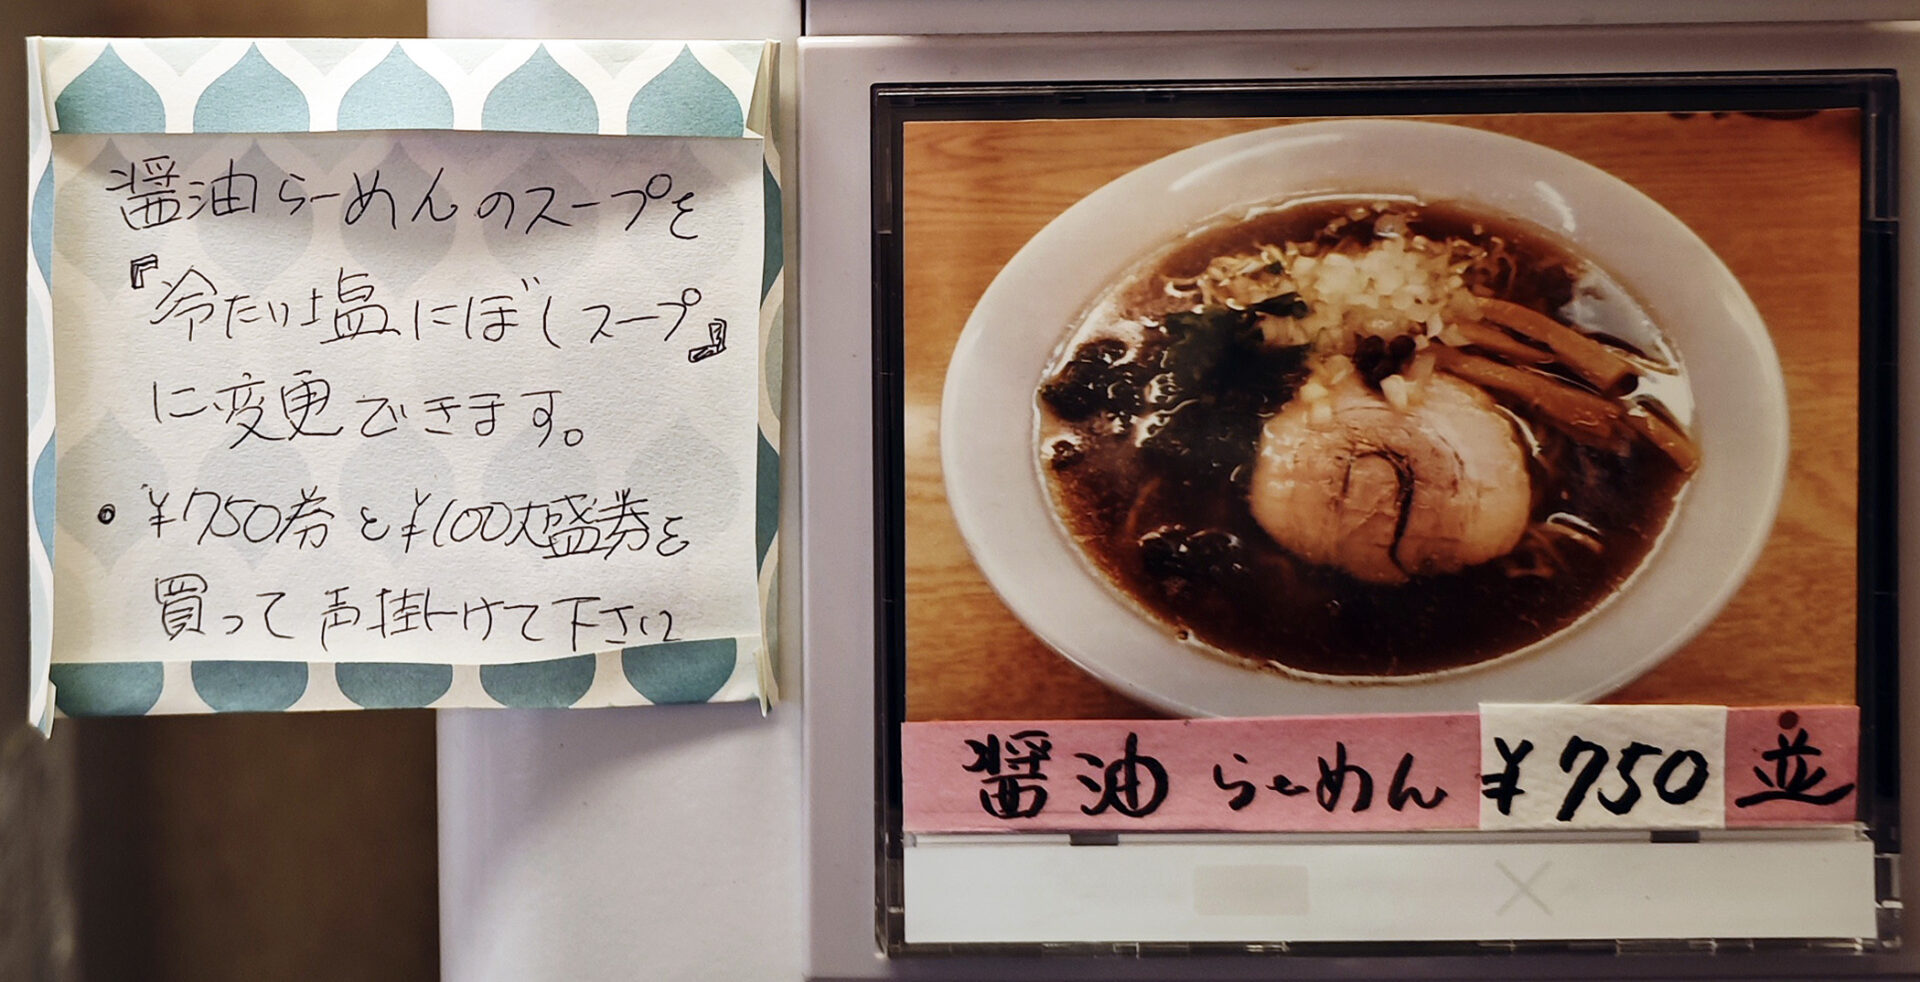 醤油らーめんのスープを
『冷たい塩にぼしスープ』
に変更できます。
• ¥750券と¥100大盛券を
買って声掛けて下さい
醤油らーめん ¥750 並